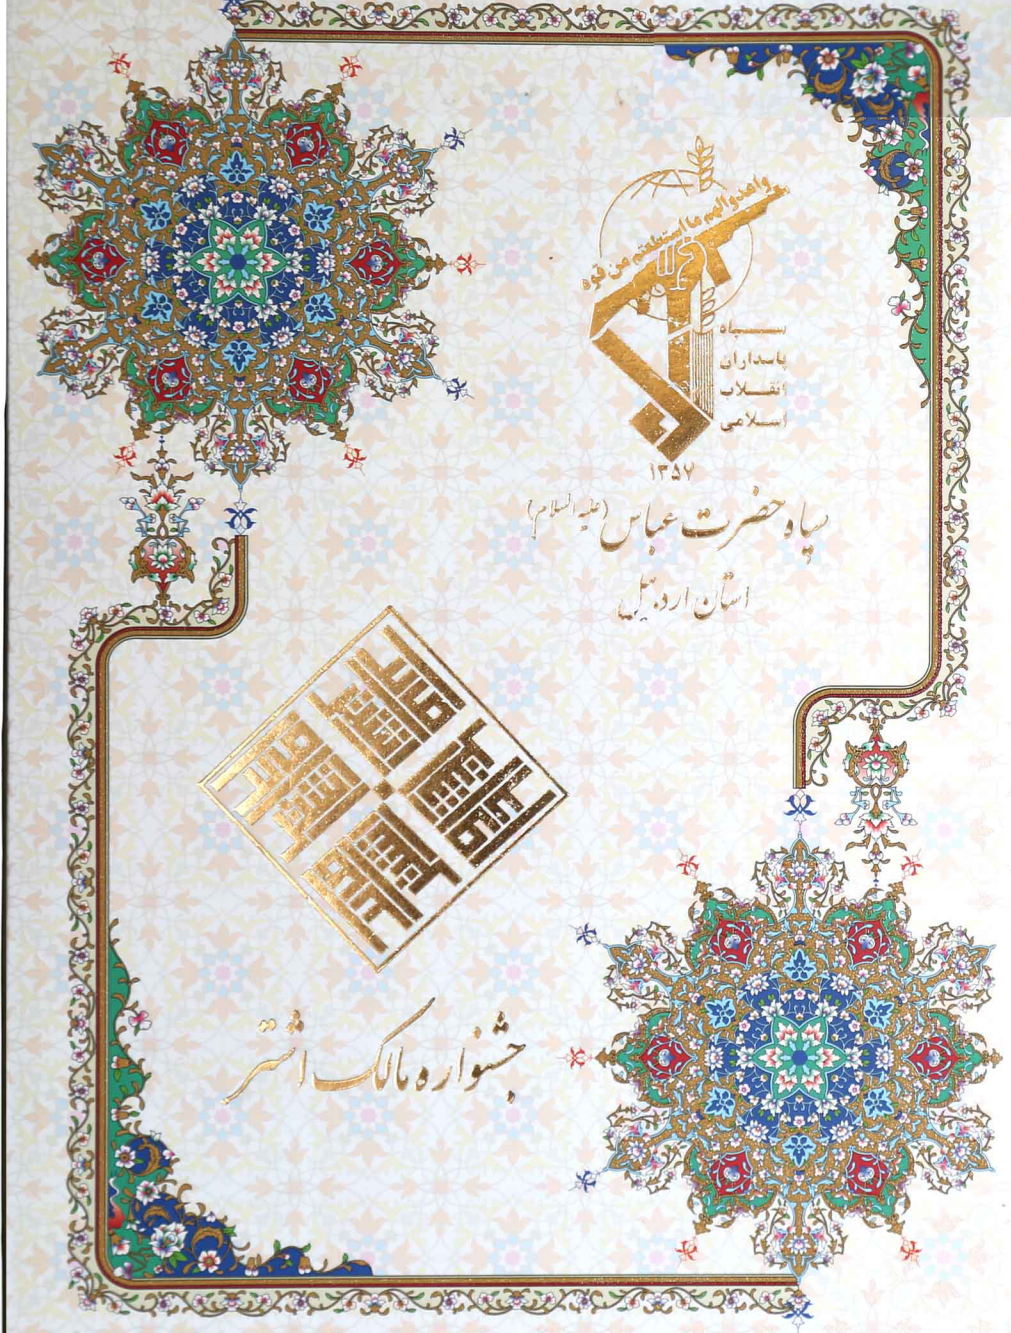 واعدوا لهم ما استطعتم من قوه
سپاه
پاسداران
انقلاب
اسلامی
۱۳۵۷
سپاه حضرت عباس (علیه السلام)
استان اردبیل
جشنواره مالک اشتر